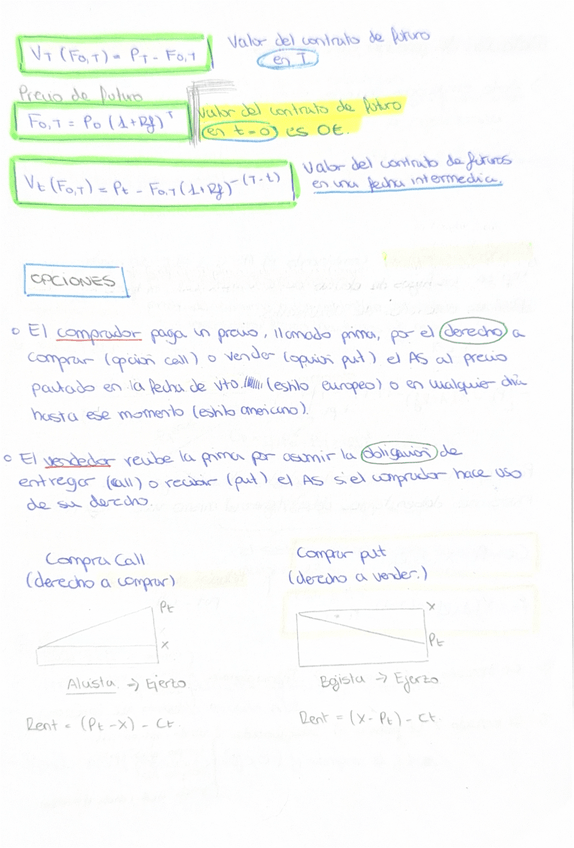 V_T (F_0,T) = P_T - F_0,T
Valor del contrato de futuro
en T
Precio de futuro
F_0,T = P_0 (1+Rf)^T
Valor del contrato de futuro
en t=0 es 0€.
V_t (F_0,T) = P_t - F_0,T (1+Rf)^-(T-t)
Valor del contrato de futuros
en una fecha intermedia.
OPCIONES
El comprador paga un precio, llamado prima, por el derecho a
comprar (opción call) o vender (opción put) el AS al precio
pactado en la fecha de vto. (estilo europeo) o en cualquier día
hasta ese momento (estilo americano).
El vendedor recibe la prima por asumir la obligación de
entregar (call) o recibir (put) el AS si el comprador hace uso
de su derecho.
Compra Call
(derecho a comprar)
Pt
X
Alcista → Ejerzo
Rent = (Pt - X) - Ct.
Comprar put
(derecho a vender.)
X
Pt
Bajista → Ejerzo
Rent = (X - Pt) - Ct.